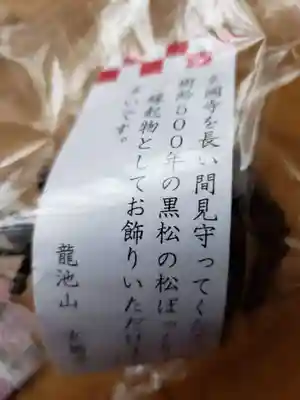 岡寺を長い間見守ってく
樹齢500年の黒松の松ぼっ
縁起物としてお飾りいただ
よいです。
龍池山